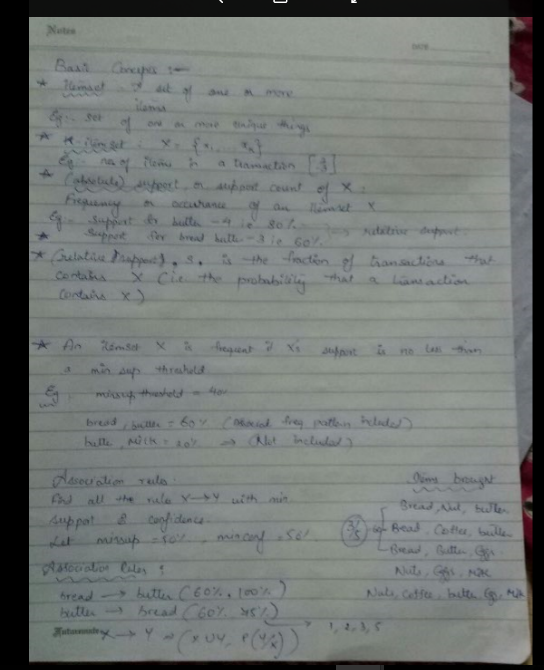 Notes
DATE
Basic Concepts :-
* itemset - set of one or more
items
Eg:- set of one or more unique things
* K-itemset - X = {x1, ... xk}
Eg:- no of items in a transaction
* (absolute) support, or support count of X :
Frequency or occurance of an itemset X
Eg:- Support for butter - 4 ie 80%
Support for bread butter - 3 ie 60% relative support.
* (relative) support, s, is the fraction of transactions that
contains X (ie the probability that a transaction
contains X)
* An itemset X is frequent if X's support is no less than
a min sup threshold
Eg. minsup threshold = 40%
bread, butter = 60% ( freq pattern included)
butter, milk = 20% => (Not included)
Association rules.
Find all the rules X→Y with min
support & confidence.
Let minsup = 50%, minconf = 50%
Association Rules :
bread → butter (60%, 100%)
butter → bread (60%, 75%)
X → Y => (X∪Y, P(Y/X))
Items brought
Bread, Nut, butter
3/5 Bread, Coffee, butter
Bread, Butter, Eggs
Nuts, Eggs, Milk
Nuts, Coffee, butter, Egg, Milk
1, 2, 3, 5